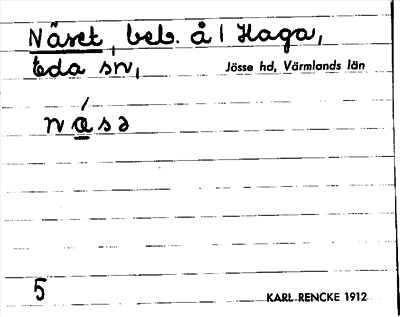 Näset, beb. å 1 Haga,
Eda sn, Jösse hd, Värmlands län
näsə
5 KARL RENCKE 1912